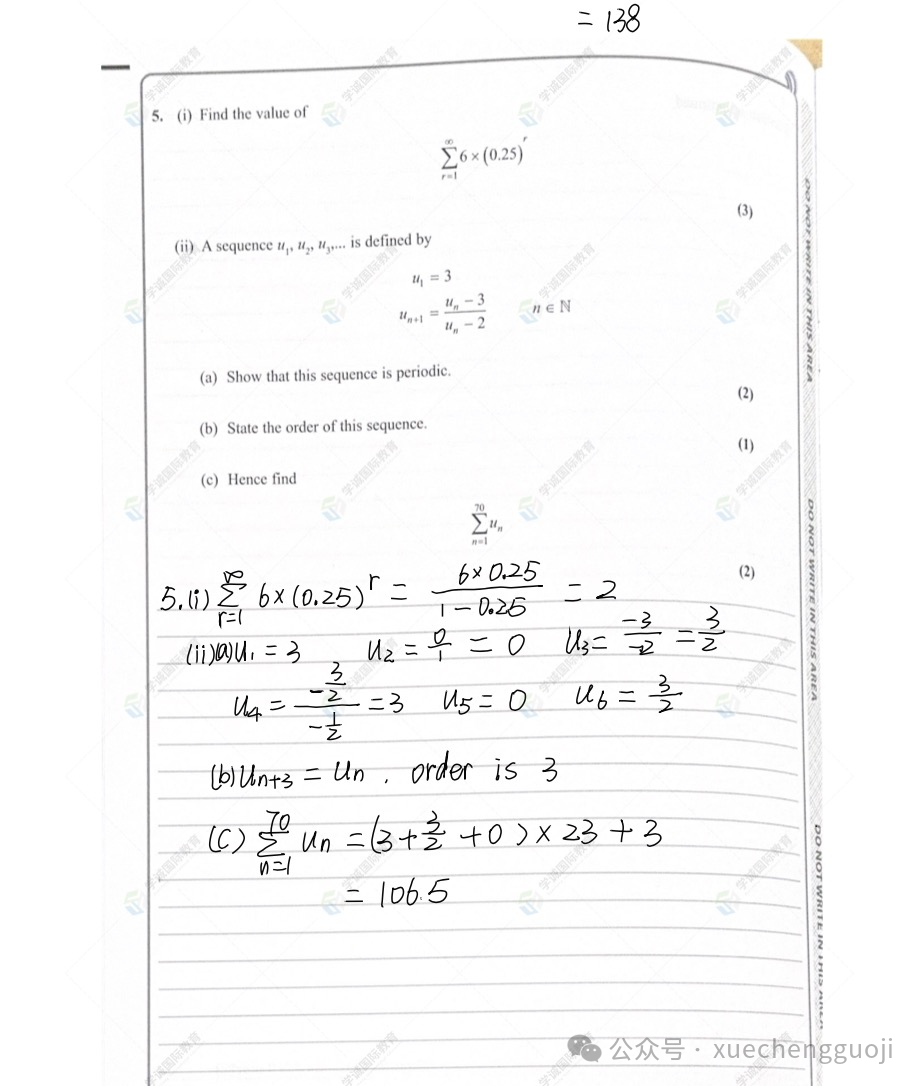 = 138
5. (i) Find the value of
∑_{r=1}^{∞} 6 × (0.25)^r
(3)
(ii) A sequence u₁, u₂, u₃,... is defined by
u₁ = 3
u_{n+1} = (u_n − 3)/(u_n − 2)   n ∈ ℕ
(a) Show that this sequence is periodic.
(2)
(b) State the order of this sequence.
(1)
(c) Hence find
∑_{n=1}^{70} u_n
(2)
5.(i) ∑_{r=1}^{∞} 6×(0.25)^r = (6×0.25)/(1−0.25) = 2
(ii)(a) u₁ = 3   u₂ = 0/1 = 0   u₃ = −3/−2 = 3/2
u₄ = (−3/2)/(−1/2) = 3   u₅ = 0   u₆ = 3/2
(b) u_{n+3} = u_n . order is 3
(C) ∑_{n=1}^{70} u_n = (3+3/2+0)×23+3
= 106.5
DO NOT WRITE IN THIS AREA
DO NOT WRITE IN THIS AREA
DO NOT WRITE IN THIS AREA
学诚国际教育
公众号 · xuechengguoji